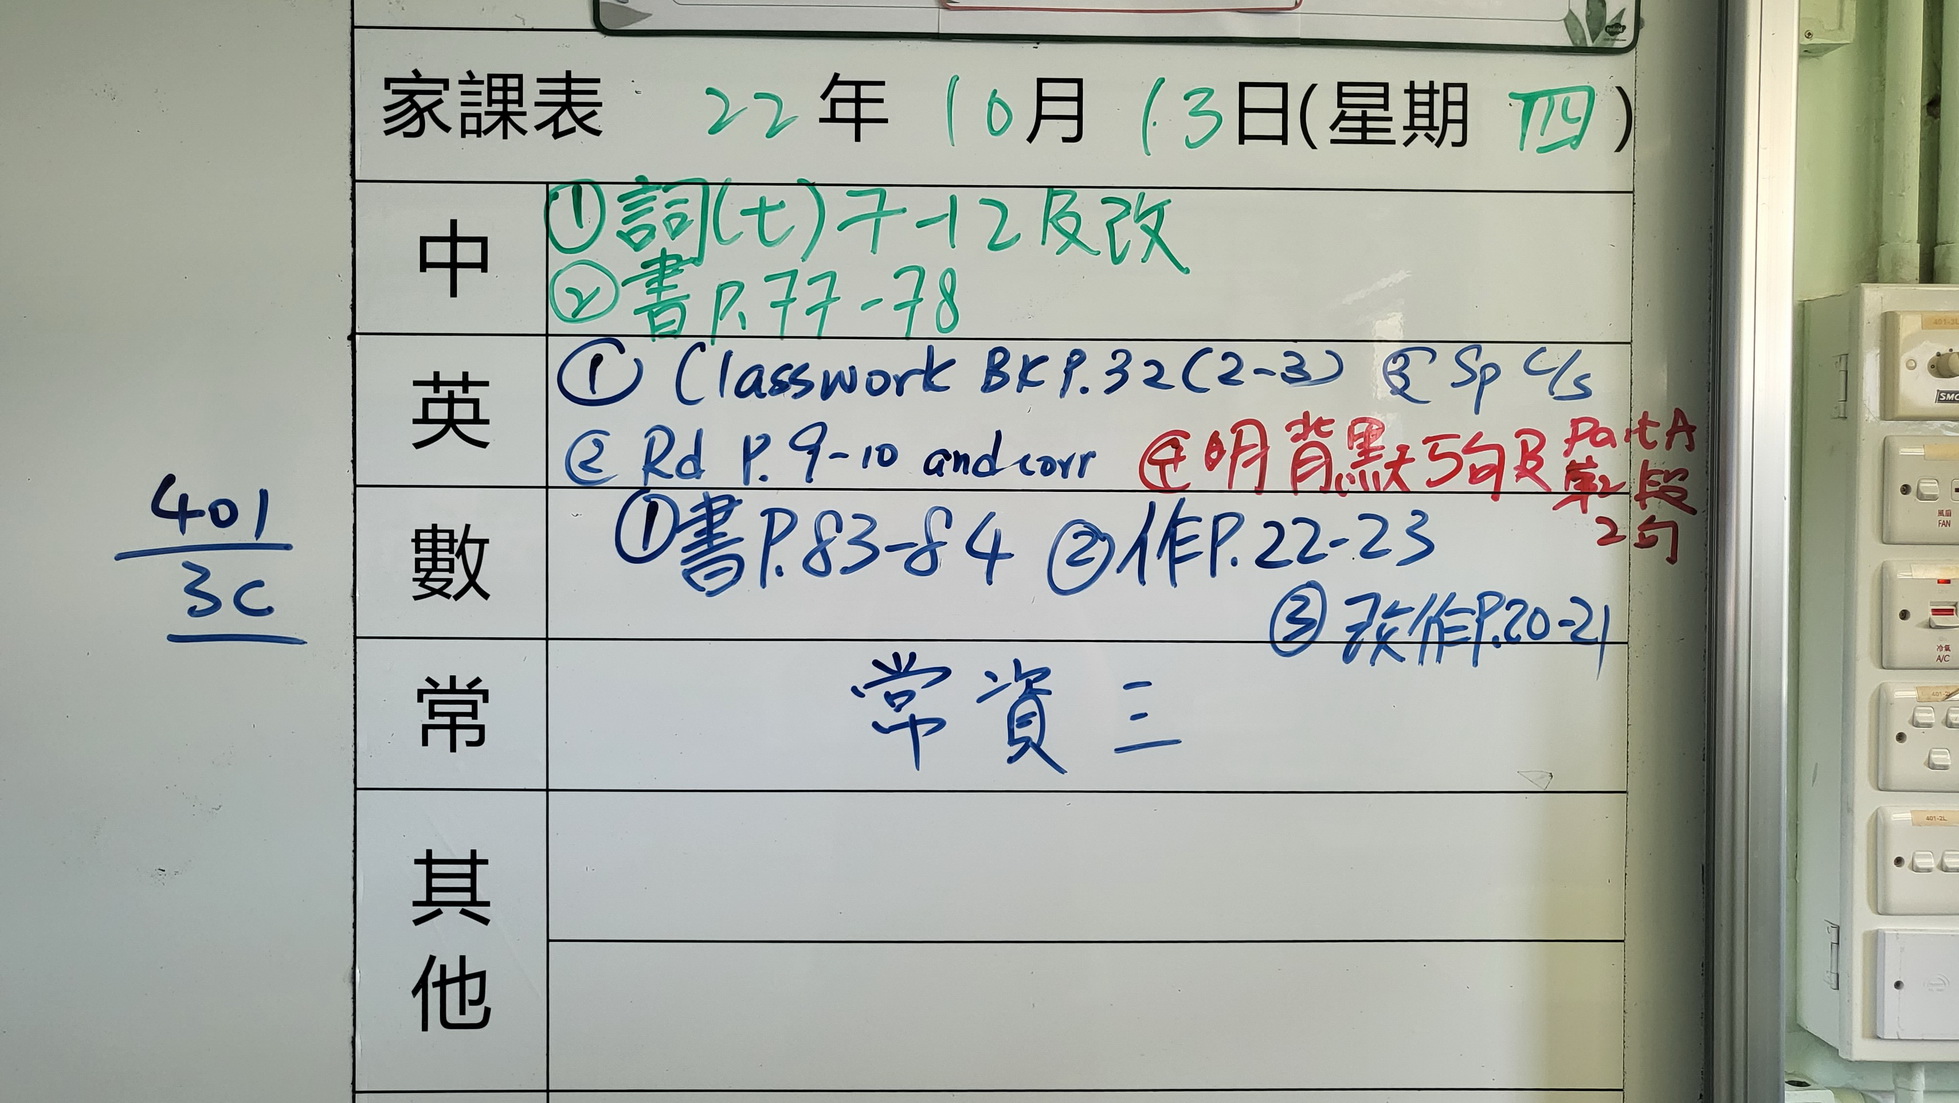 家課表 22年10月13日(星期四)
中
①詞(七)7-12及改
②書P.77-78
英
① Classwork BK P.32(2-3) ③ Sp C/s
② Rd P. 9-10 and corr ④明背默5句及 Part A
第2段
2句
401
3C
數
①書P.83-84 ②作P.22-23
③改作P.20-21
常
常資三
其他
風扇
FAN
冷氣
A/C
401-2L